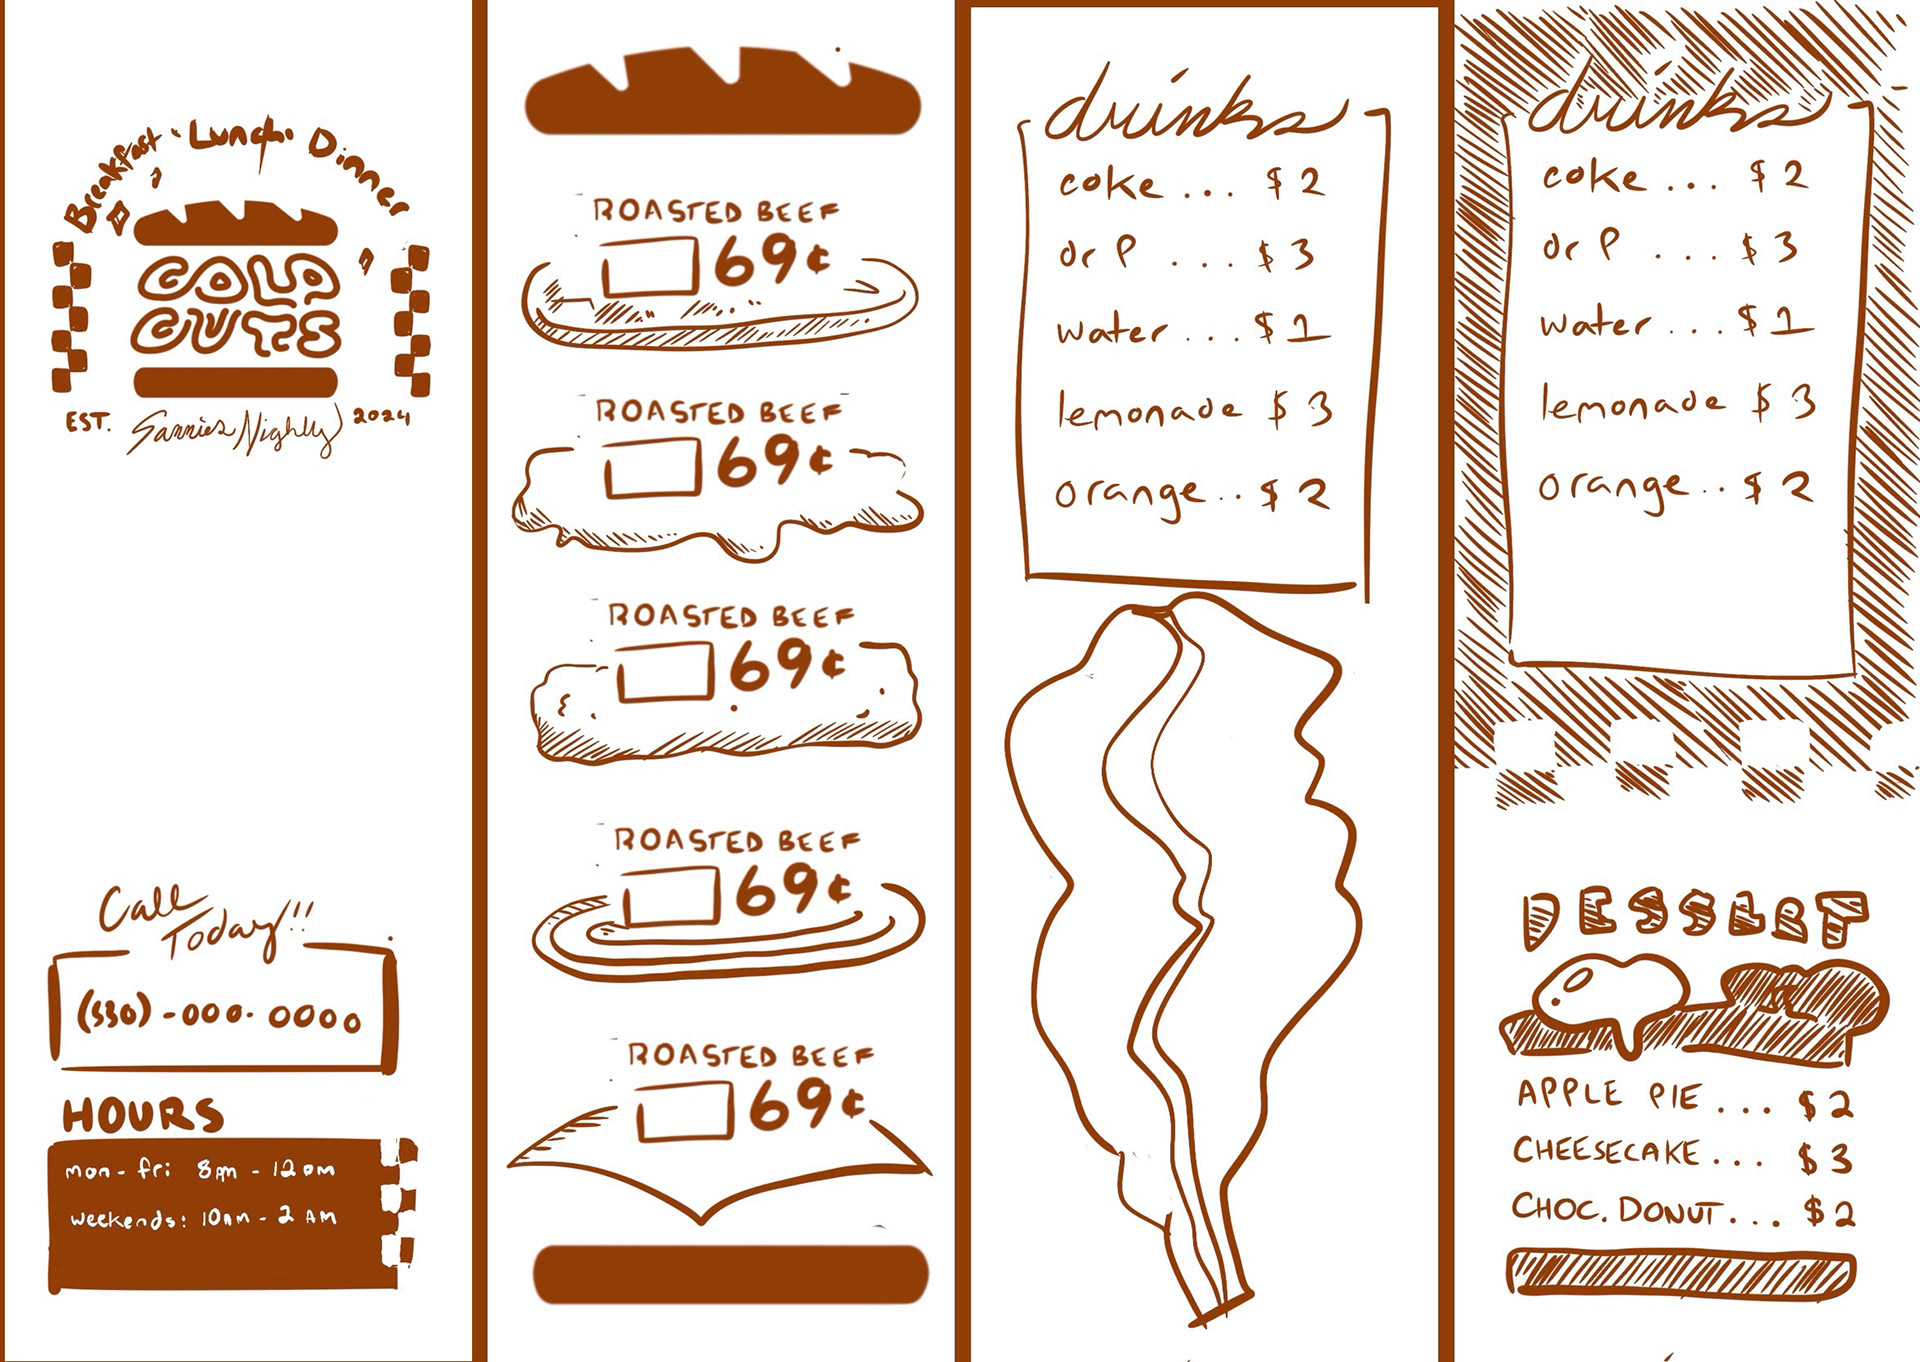 Breakfast · Lunch · Dinner
COLD
CUTS
EST. Sammies Nightly 2024
Call
Today!!
(330)-000-0000
HOURS
mon-fri 8pm - 12am
weekends: 10AM - 2 AM
ROASTED BEEF
69¢
ROASTED BEEF
69¢
ROASTED BEEF
69¢
ROASTED BEEF
69¢
ROASTED BEEF
69¢
drinks
coke ... $2
dr P ... $3
water ... $1
lemonade $3
orange .. $2
drinks
coke ... $2
dr P ... $3
water ... $1
lemonade $3
orange .. $2
DESSERT
APPLE PIE ... $2
CHEESECAKE ... $3
CHOC. DONUT ... $2